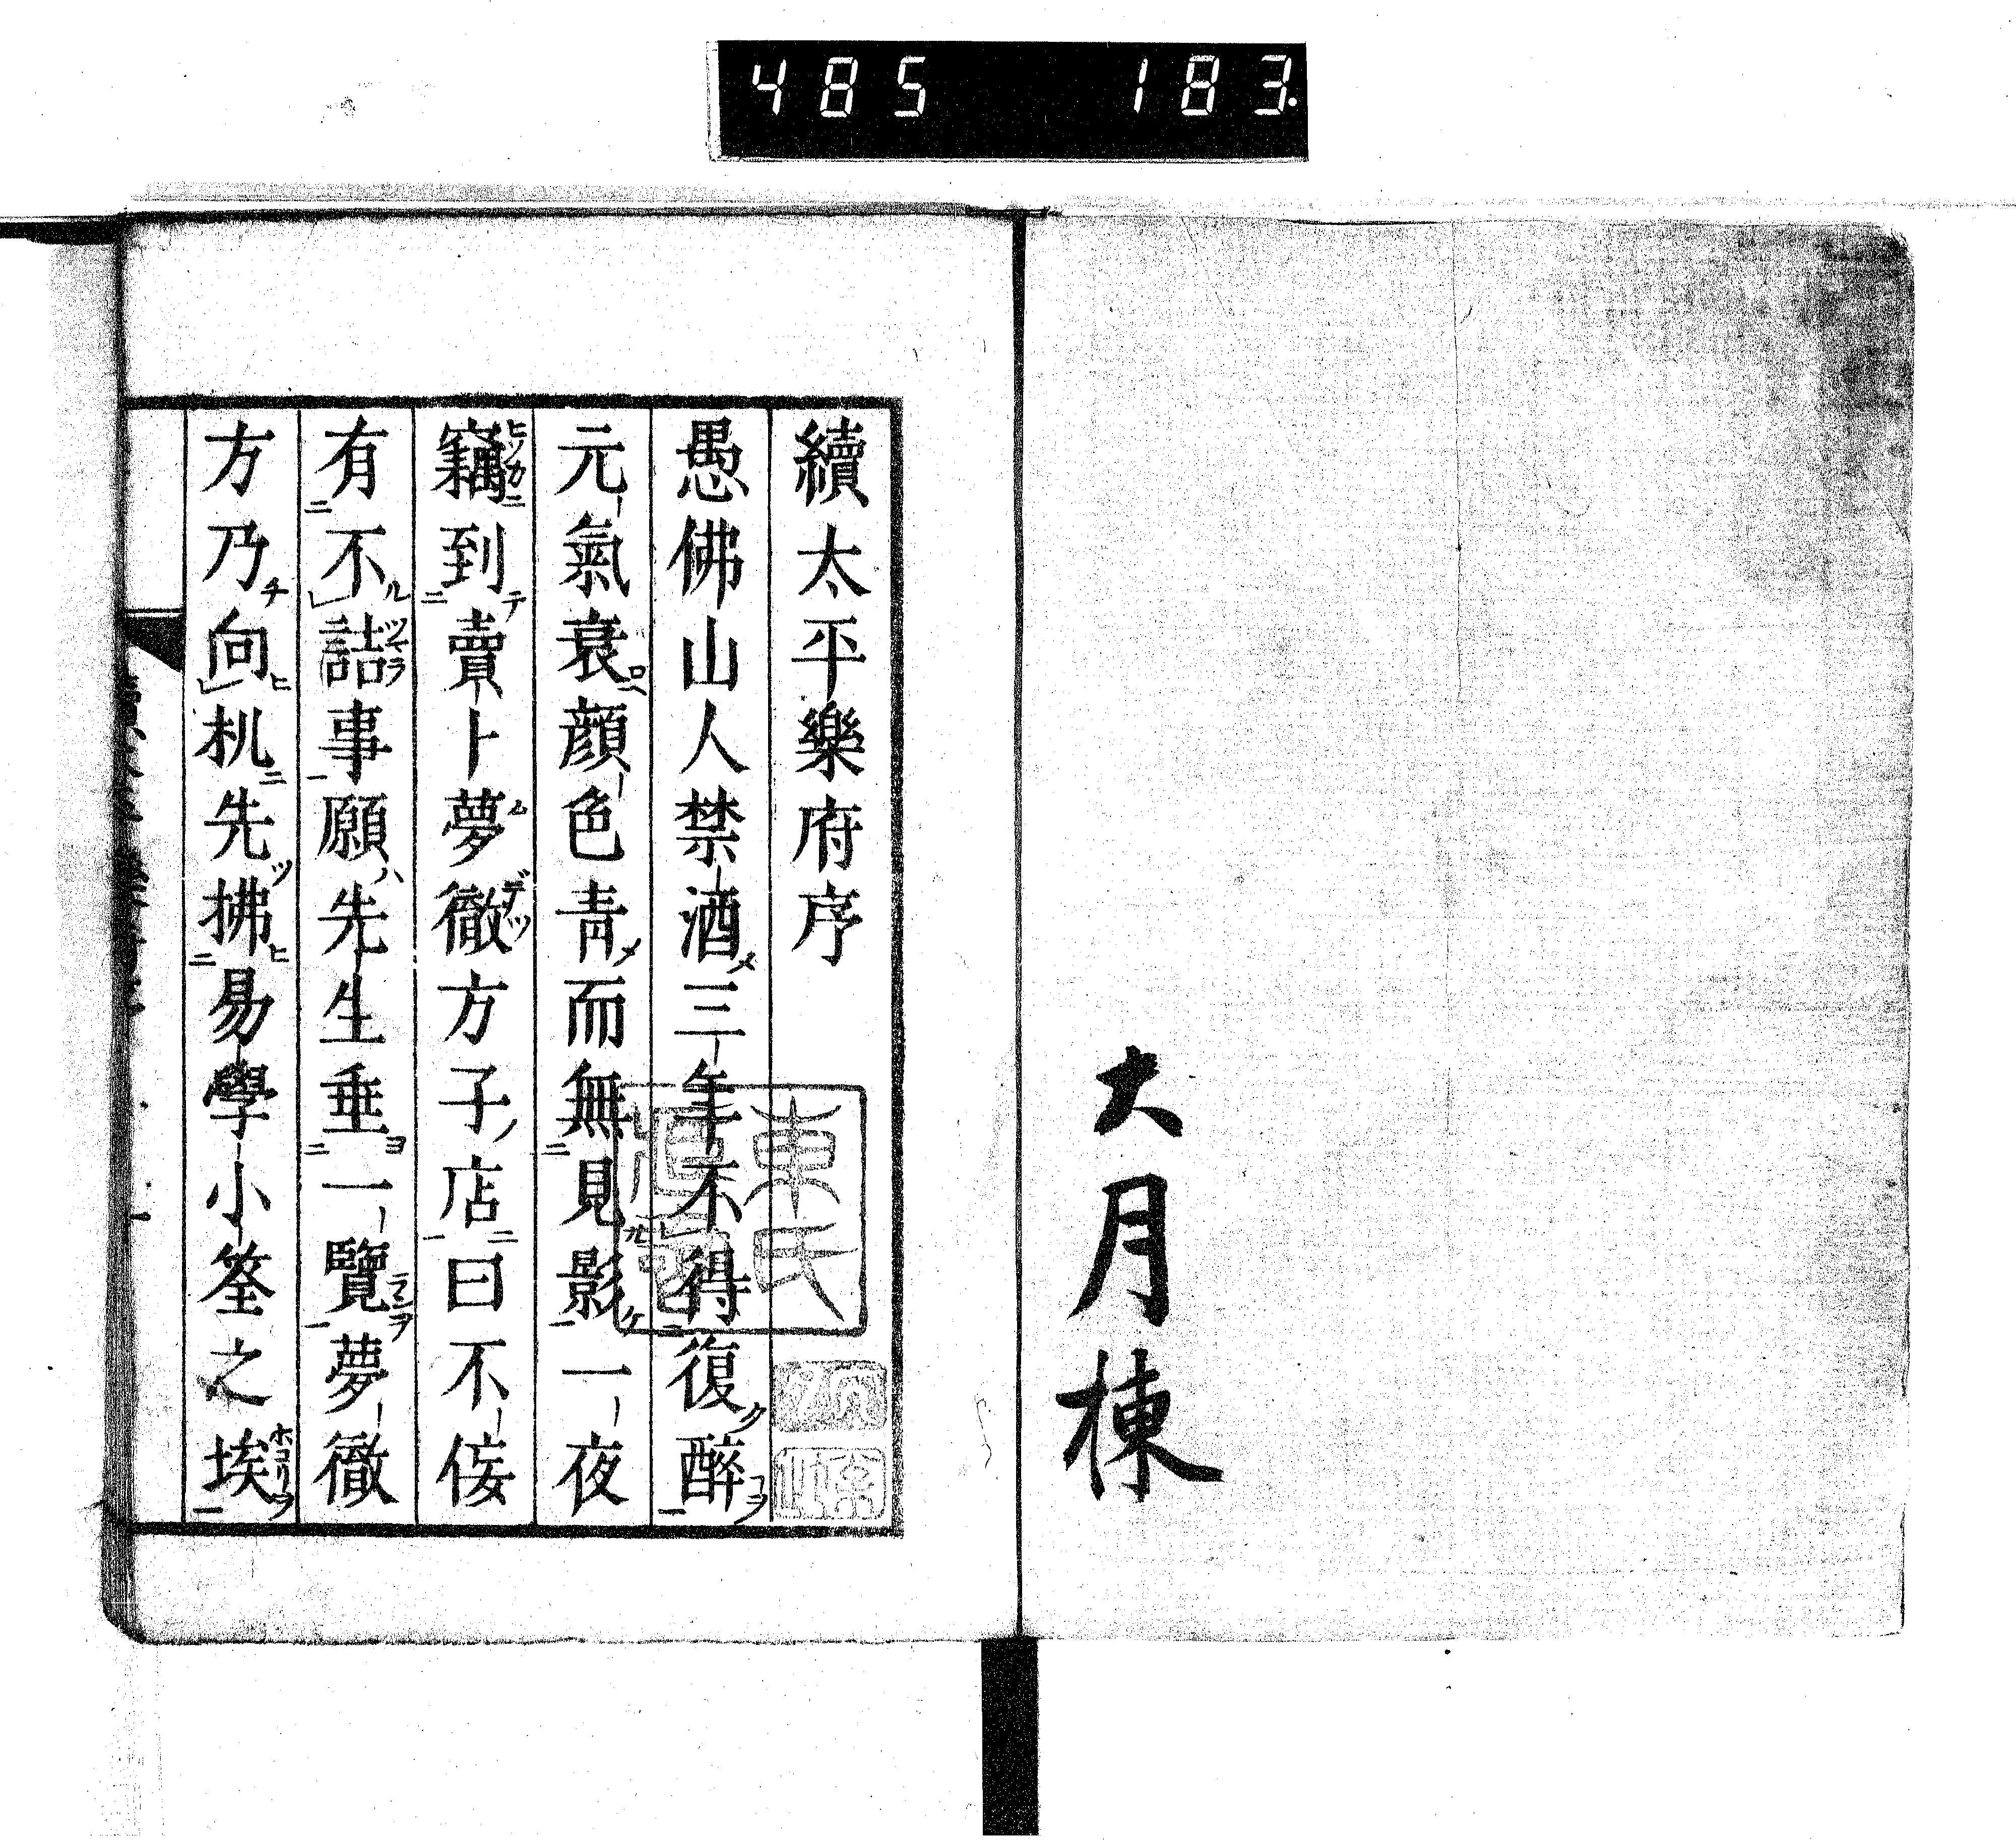 485 183
大月棟
續太平樂府序
愚佛山人禁酒三年不得復醉
元氣衰顔色青而無見影一夜
竊到賣卜夢徹方子店曰不侫
有不詰事願先生垂一覽夢徹
方乃向机先拂易學小筌之埃
東氏